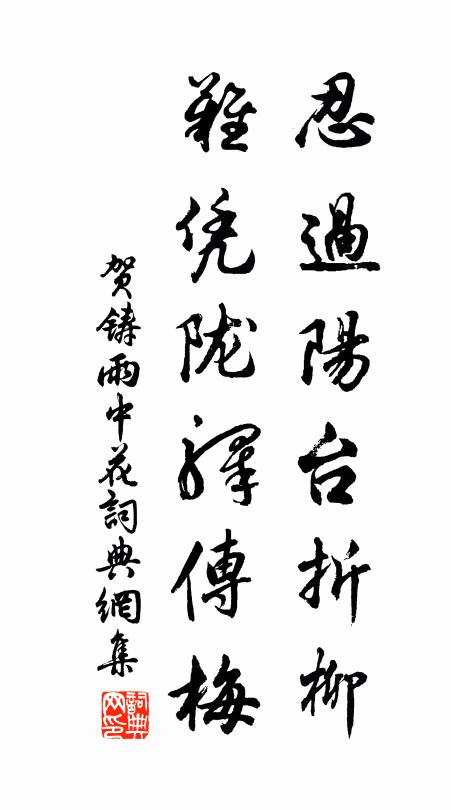 忍過陽台折柳
難凭陇驛傳梅
贺鑄雨中花詞典網集
詞典網印